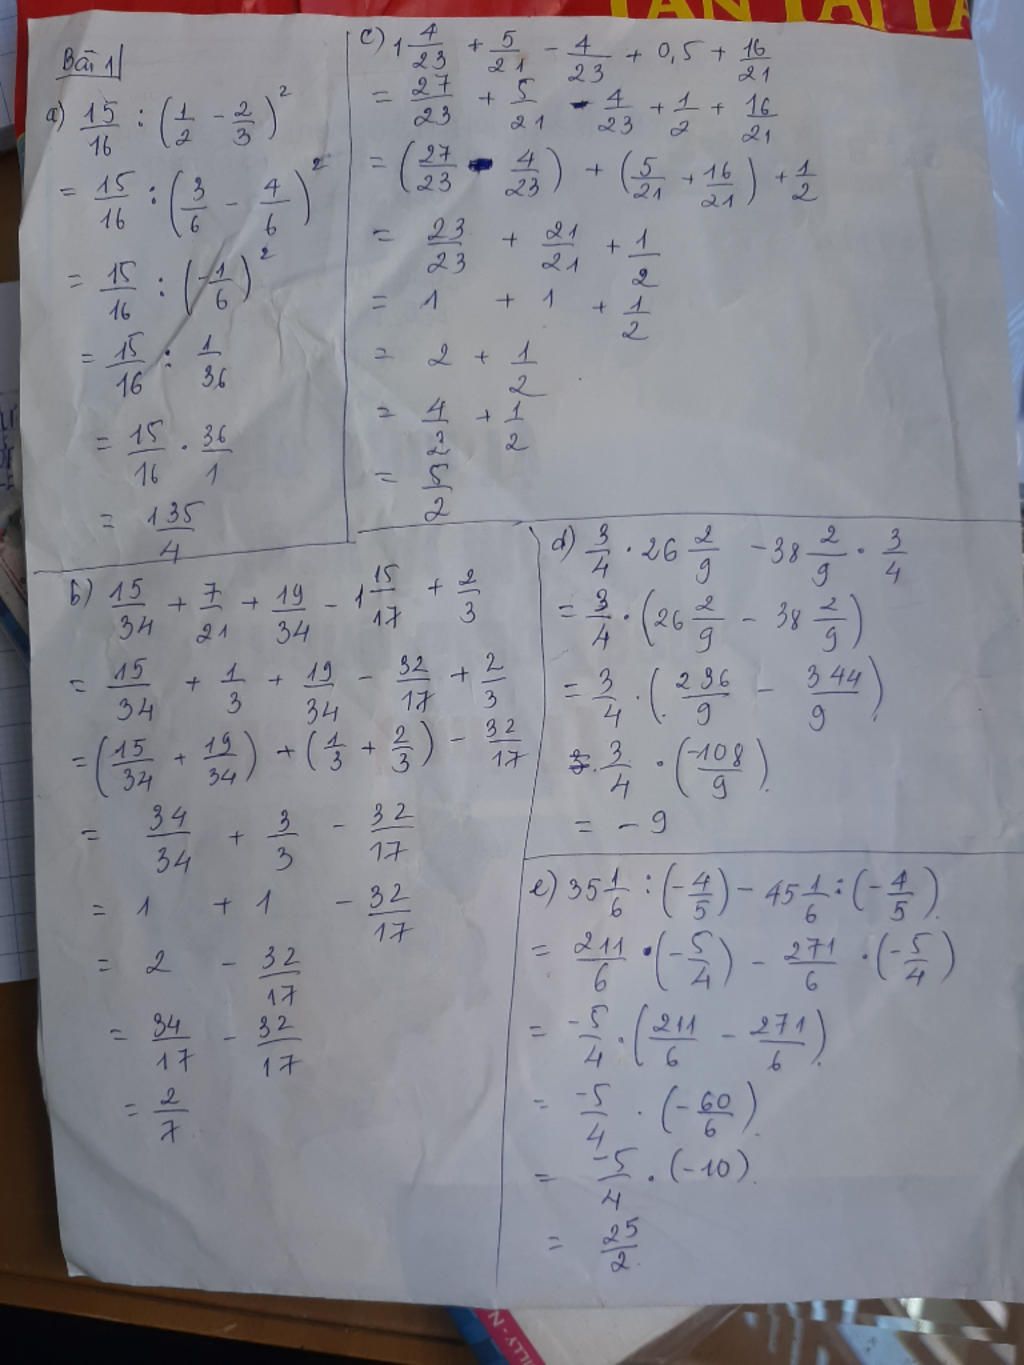 TAN TAI TA
Bài 1
a) 15/16 : (1/2 - 2/3)²
= 15/16 : (3/6 - 4/6)²
= 15/16 : (-1/6)²
= 15/16 : 1/36
= 15/16 . 36/1
= 135/4
c) 1 4/23 + 5/21 - 4/23 + 0,5 + 16/21
= 27/23 + 5/21 - 4/23 + 1/2 + 16/21
= (27/23 - 4/23) + (5/21 + 16/21) + 1/2
= 23/23 + 21/21 + 1/2
= 1 + 1 + 1/2
= 2 + 1/2
= 4/2 + 1/2
= 5/2
b) 15/34 + 7/21 + 19/34 - 1 15/17 + 2/3
= 15/34 + 1/3 + 19/34 - 32/17 + 2/3
= (15/34 + 19/34) + (1/3 + 2/3) - 32/17
= 34/34 + 3/3 - 32/17
= 1 + 1 - 32/17
= 2 - 32/17
= 34/17 - 32/17
= 2/7
d) 3/4 . 26 2/9 - 38 2/9 . 3/4
= 3/4 . (26 2/9 - 38 2/9)
= 3/4 . (236/9 - 344/9)
3/4 . (-108/9)
= -9
e) 35 1/6 : (-4/5) - 45 1/6 : (-4/5)
= 211/6 . (-5/4) - 271/6 . (-5/4)
= -5/4 . (211/6 - 271/6)
= -5/4 . (-60/6)
= -5/4 . (-10)
= 25/2
ILLY-N